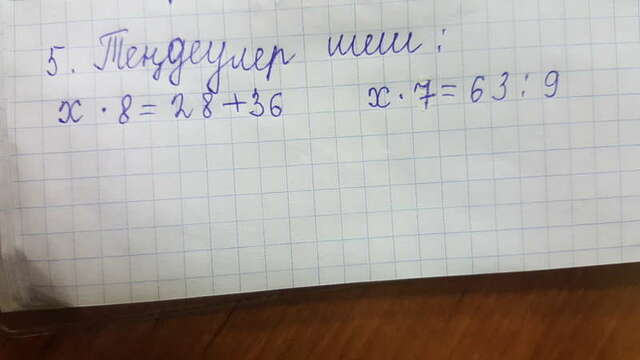 5. Теңдеулер шеш:
x · 8 = 28 + 36 x · 7 = 63 : 9